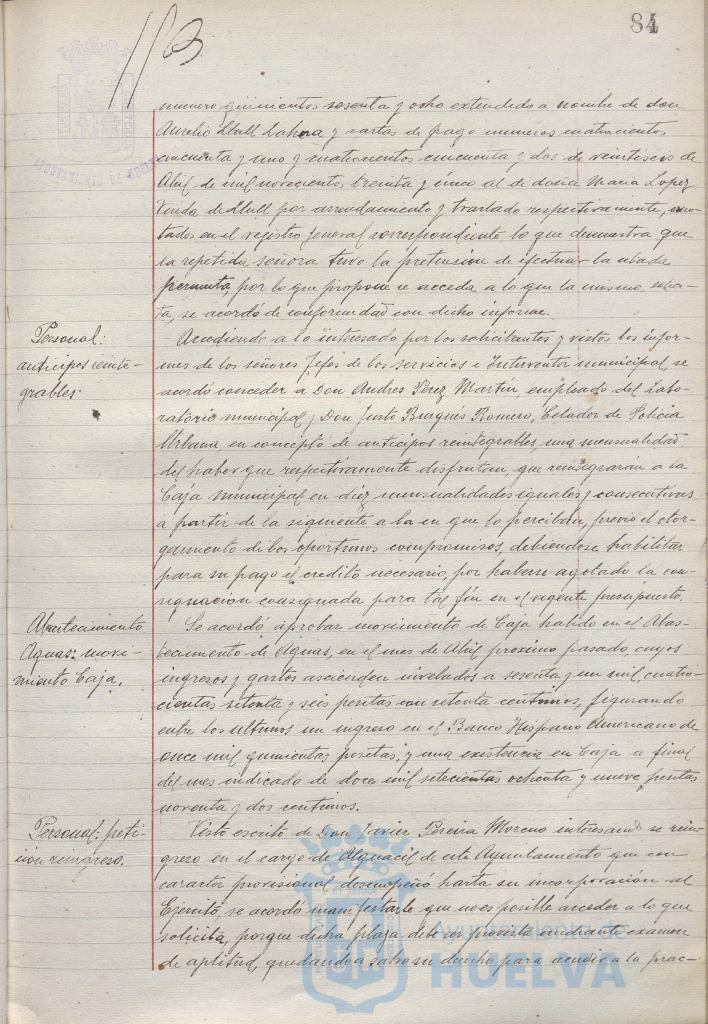 84
113
AYUNTAMIENTO DE HUELVA
numero quinientos sesenta y ocho extendido a nombre de don
Aurelio Llull y cartas de pago numeros cuatrocientos
cincuenta y uno y cuatrocientos cincuenta y dos de veintiseis de
Abril de mil novecientos treinta y cinco al de doña Maria Lopez
Viuda de Llull por arrendamiento y traslado respectivamente, ano-
tados en el registro general correspondiente lo que demuestra que
la repetida señora tuvo la pretension de efectuar la citada
permuta, por lo que propone se acceda a lo que la misma solici-
ta, se acordó de conformidad con dicho informe.
Personal:
anticipos reinte-
grables.
Accediendo a lo interesado por los solicitantes y vistos los infor-
mes de los señores Jefes de los servicios e Interventor municipal, se
acordó conceder a Don Andres Pérez Martín, empleado del Labo-
ratorio municipal y Don Justo Burgués Romero, Celador de Policia
Urbana, en concepto de anticipos reintegrables, una mensualidad
del haber que respectivamente disfrutan, que reintegrarán a la
Caja municipal en diez mensualidades iguales y consecutivas
a partir de la siguiente a la en que lo perciban, previo el otor-
gamiento de los oportunos compromisos, debiendose habilitar
para su pago el credito necesario, por haberse agotado la con-
signacion consignada para tal fin en el vigente presupuesto.
Abastecimiento
Aguas: movi-
miento Caja.
Se acordó aprobar movimiento de Caja habido en el Abas-
tecimiento de Aguas, en el mes de Abril proximo pasado, cuyos
ingresos y gastos ascienden nivelados a sesenta y un mil cuatro-
cientas setenta y seis pesetas con setenta centimos, figurando
entre los ultimos un ingreso en el Banco Hispano Americano de
once mil quinientas pesetas, y una existencia en Caja a final
del mes indicado de doce mil setecientas ochenta y nueve pesetas
noventa y dos centimos.
Personal: peti-
ción reingreso.
Visto escrito de Don Javier Pereira Moreno interesando se rein-
greso en el cargo de Alguacil de este Ayuntamiento que con
caracter provisional desempeñó hasta su incorporación al
Ejercito, se acordó manifestarle que no es posible acceder a lo que
solicita, porque dicha plaza debe ser provista mediante examen
de aptitud, quedando a salvo su derecho para acudir a la prac-
Ayuntamiento de
HUELVA